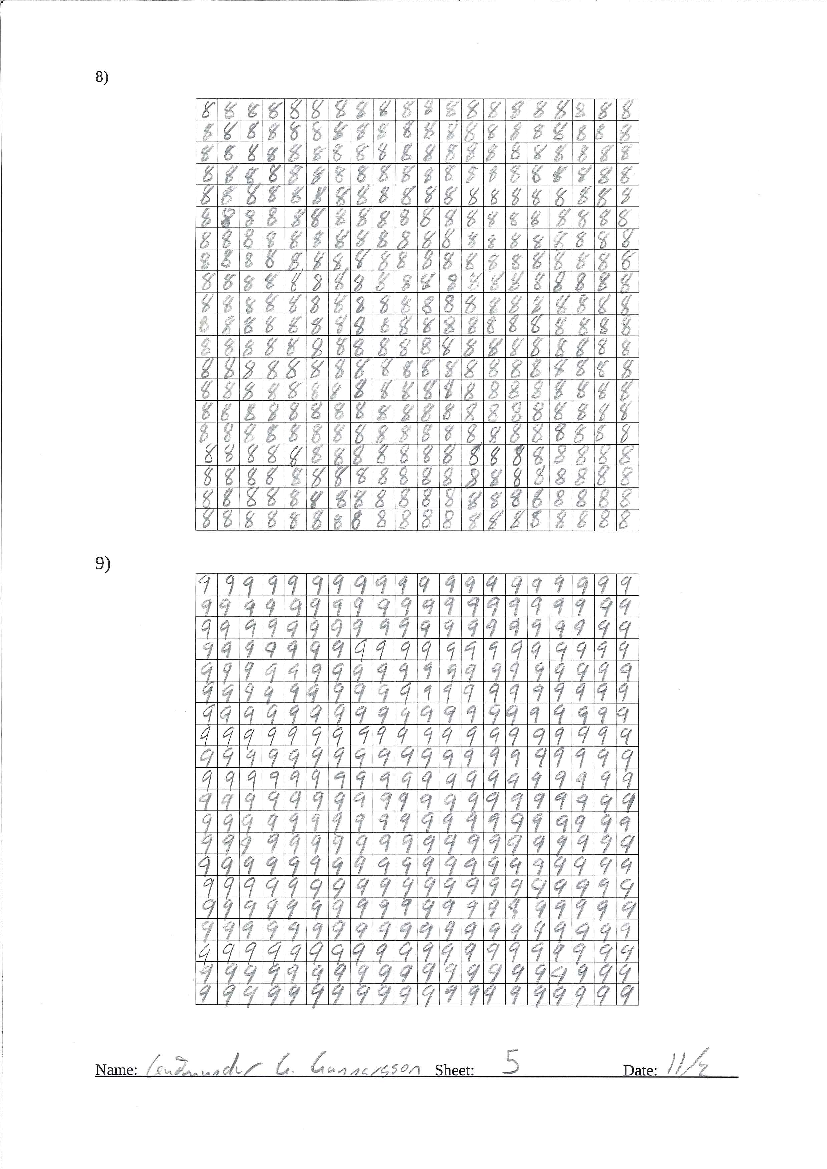 8)
8 8 8 8 8 8 8 8 8 8 8 8 8 8 8 8 8 8 8 8
8 8 8 8 8 8 8 8 8 8 8 8 8 8 8 8 8 8 8 8
8 8 8 8 8 8 8 8 8 8 8 8 8 8 8 8 8 8 8 8
8 8 8 8 8 8 8 8 8 8 8 8 8 8 8 8 8 8 8 8
8 8 8 8 8 8 8 8 8 8 8 8 8 8 8 8 8 8 8 8
8 8 8 8 8 8 8 8 8 8 8 8 8 8 8 8 8 8 8 8
8 8 8 8 8 8 8 8 8 8 8 8 8 8 8 8 8 8 8 8
8 8 8 8 8 8 8 8 8 8 8 8 8 8 8 8 8 8 8 8
8 8 8 8 8 8 8 8 8 8 8 8 8 8 8 8 8 8 8 8
8 8 8 8 8 8 8 8 8 8 8 8 8 8 8 8 8 8 8 8
8 8 8 8 8 8 8 8 8 8 8 8 8 8 8 8 8 8 8 8
8 8 8 8 8 8 8 8 8 8 8 8 8 8 8 8 8 8 8 8
8 8 8 8 8 8 8 8 8 8 8 8 8 8 8 8 8 8 8 8
8 8 8 8 8 8 8 8 8 8 8 8 8 8 8 8 8 8 8 8
8 8 8 8 8 8 8 8 8 8 8 8 8 8 8 8 8 8 8 8
8 8 8 8 8 8 8 8 8 8 8 8 8 8 8 8 8 8 8 8
8 8 8 8 8 8 8 8 8 8 8 8 8 8 8 8 8 8 8 8
8 8 8 8 8 8 8 8 8 8 8 8 8 8 8 8 8 8 8 8
8 8 8 8 8 8 8 8 8 8 8 8 8 8 8 8 8 8 8 8
8 8 8 8 8 8 8 8 8 8 8 8 8 8 8 8 8 8 8 8
9)
9 9 9 9 9 9 9 9 9 9 9 9 9 9 9 9 9 9 9 9
9 9 9 9 9 9 9 9 9 9 9 9 9 9 9 9 9 9 9 9
9 9 9 9 9 9 9 9 9 9 9 9 9 9 9 9 9 9 9 9
9 9 9 9 9 9 9 9 9 9 9 9 9 9 9 9 9 9 9 9
9 9 9 9 9 9 9 9 9 9 9 9 9 9 9 9 9 9 9 9
9 9 9 9 9 9 9 9 9 9 9 9 9 9 9 9 9 9 9 9
9 9 9 9 9 9 9 9 9 9 9 9 9 9 9 9 9 9 9 9
9 9 9 9 9 9 9 9 9 9 9 9 9 9 9 9 9 9 9 9
9 9 9 9 9 9 9 9 9 9 9 9 9 9 9 9 9 9 9 9
9 9 9 9 9 9 9 9 9 9 9 9 9 9 9 9 9 9 9 9
9 9 9 9 9 9 9 9 9 9 9 9 9 9 9 9 9 9 9 9
9 9 9 9 9 9 9 9 9 9 9 9 9 9 9 9 9 9 9 9
9 9 9 9 9 9 9 9 9 9 9 9 9 9 9 9 9 9 9 9
9 9 9 9 9 9 9 9 9 9 9 9 9 9 9 9 9 9 9 9
9 9 9 9 9 9 9 9 9 9 9 9 9 9 9 9 9 9 9 9
9 9 9 9 9 9 9 9 9 9 9 9 9 9 9 9 9 9 9 9
9 9 9 9 9 9 9 9 9 9 9 9 9 9 9 9 9 9 9 9
9 9 9 9 9 9 9 9 9 9 9 9 9 9 9 9 9 9 9 9
9 9 9 9 9 9 9 9 9 9 9 9 9 9 9 9 9 9 9 9
9 9 9 9 9 9 9 9 9 9 9 9 9 9 9 9 9 9 9 9
Name: Guðmundur G. Gunnarsson Sheet: 5 Date: 11/2